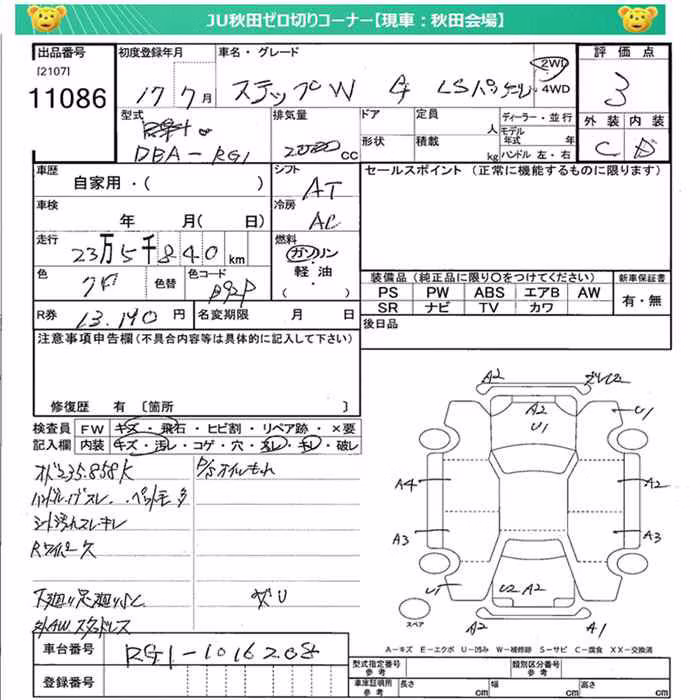 JU秋田ゼロ切りコーナー【現車：秋田会場】
出品番号
［2107］
11086
初度登録年月
17 7月
車名・グレード
ステップW G LSパッケージ
2WD
4WD
評価点
3
外装 内装
C D
型式
DBA-RG1
排気量
2000cc
ドア
形状
定員
人
積載
kg
ディーラー・並行
モデル年式 年
ハンドル 左・右
車歴
自家用・( )
シフト
AT
セールスポイント（正常に機能するものに限ります）
車検
年 月( 日)
冷房
AC
走行
23万5千840km
燃料
ガソリン
軽油・
( )
色
クロ
色替
色コード
B92P
装備品（純正品に限り〇をつけてください）
新車保証書
PS PW ABS エアB AW
SR ナビ TV カワ
有・無
R券
13.190円
名変期限 月 日
後日品
注意事項申告欄（不具合内容等は具体的に記入して下さい）
修復歴 有 〔箇所 〕
検査員記入欄
FW キズ・飛石・ヒビ割・リペア跡・×要
内装 キズ・汚レ・コゲ・穴・スレ・キレ・破レ
オド235.858K
P/Sオイルもれ
ハンドル、ノブスレ、ペットモ多
シート汚れスレ・キレ
Rワイパー欠
下廻り足廻りサビ
外AWスタッドレス
A2
A2
U1
U1
A4
A2
A3
A3
U1
U2 A2
A2
A1
スペア
A-キズ E-エクボ U-凹み W-補修跡 S-サビ C-腐食 XX-交換済
車台番号
RG1-1016208
登録番号
型式指定番号
参考
類別区分番号
参考
車庫証明用
参考
長さ cm
幅 cm
高さ cm